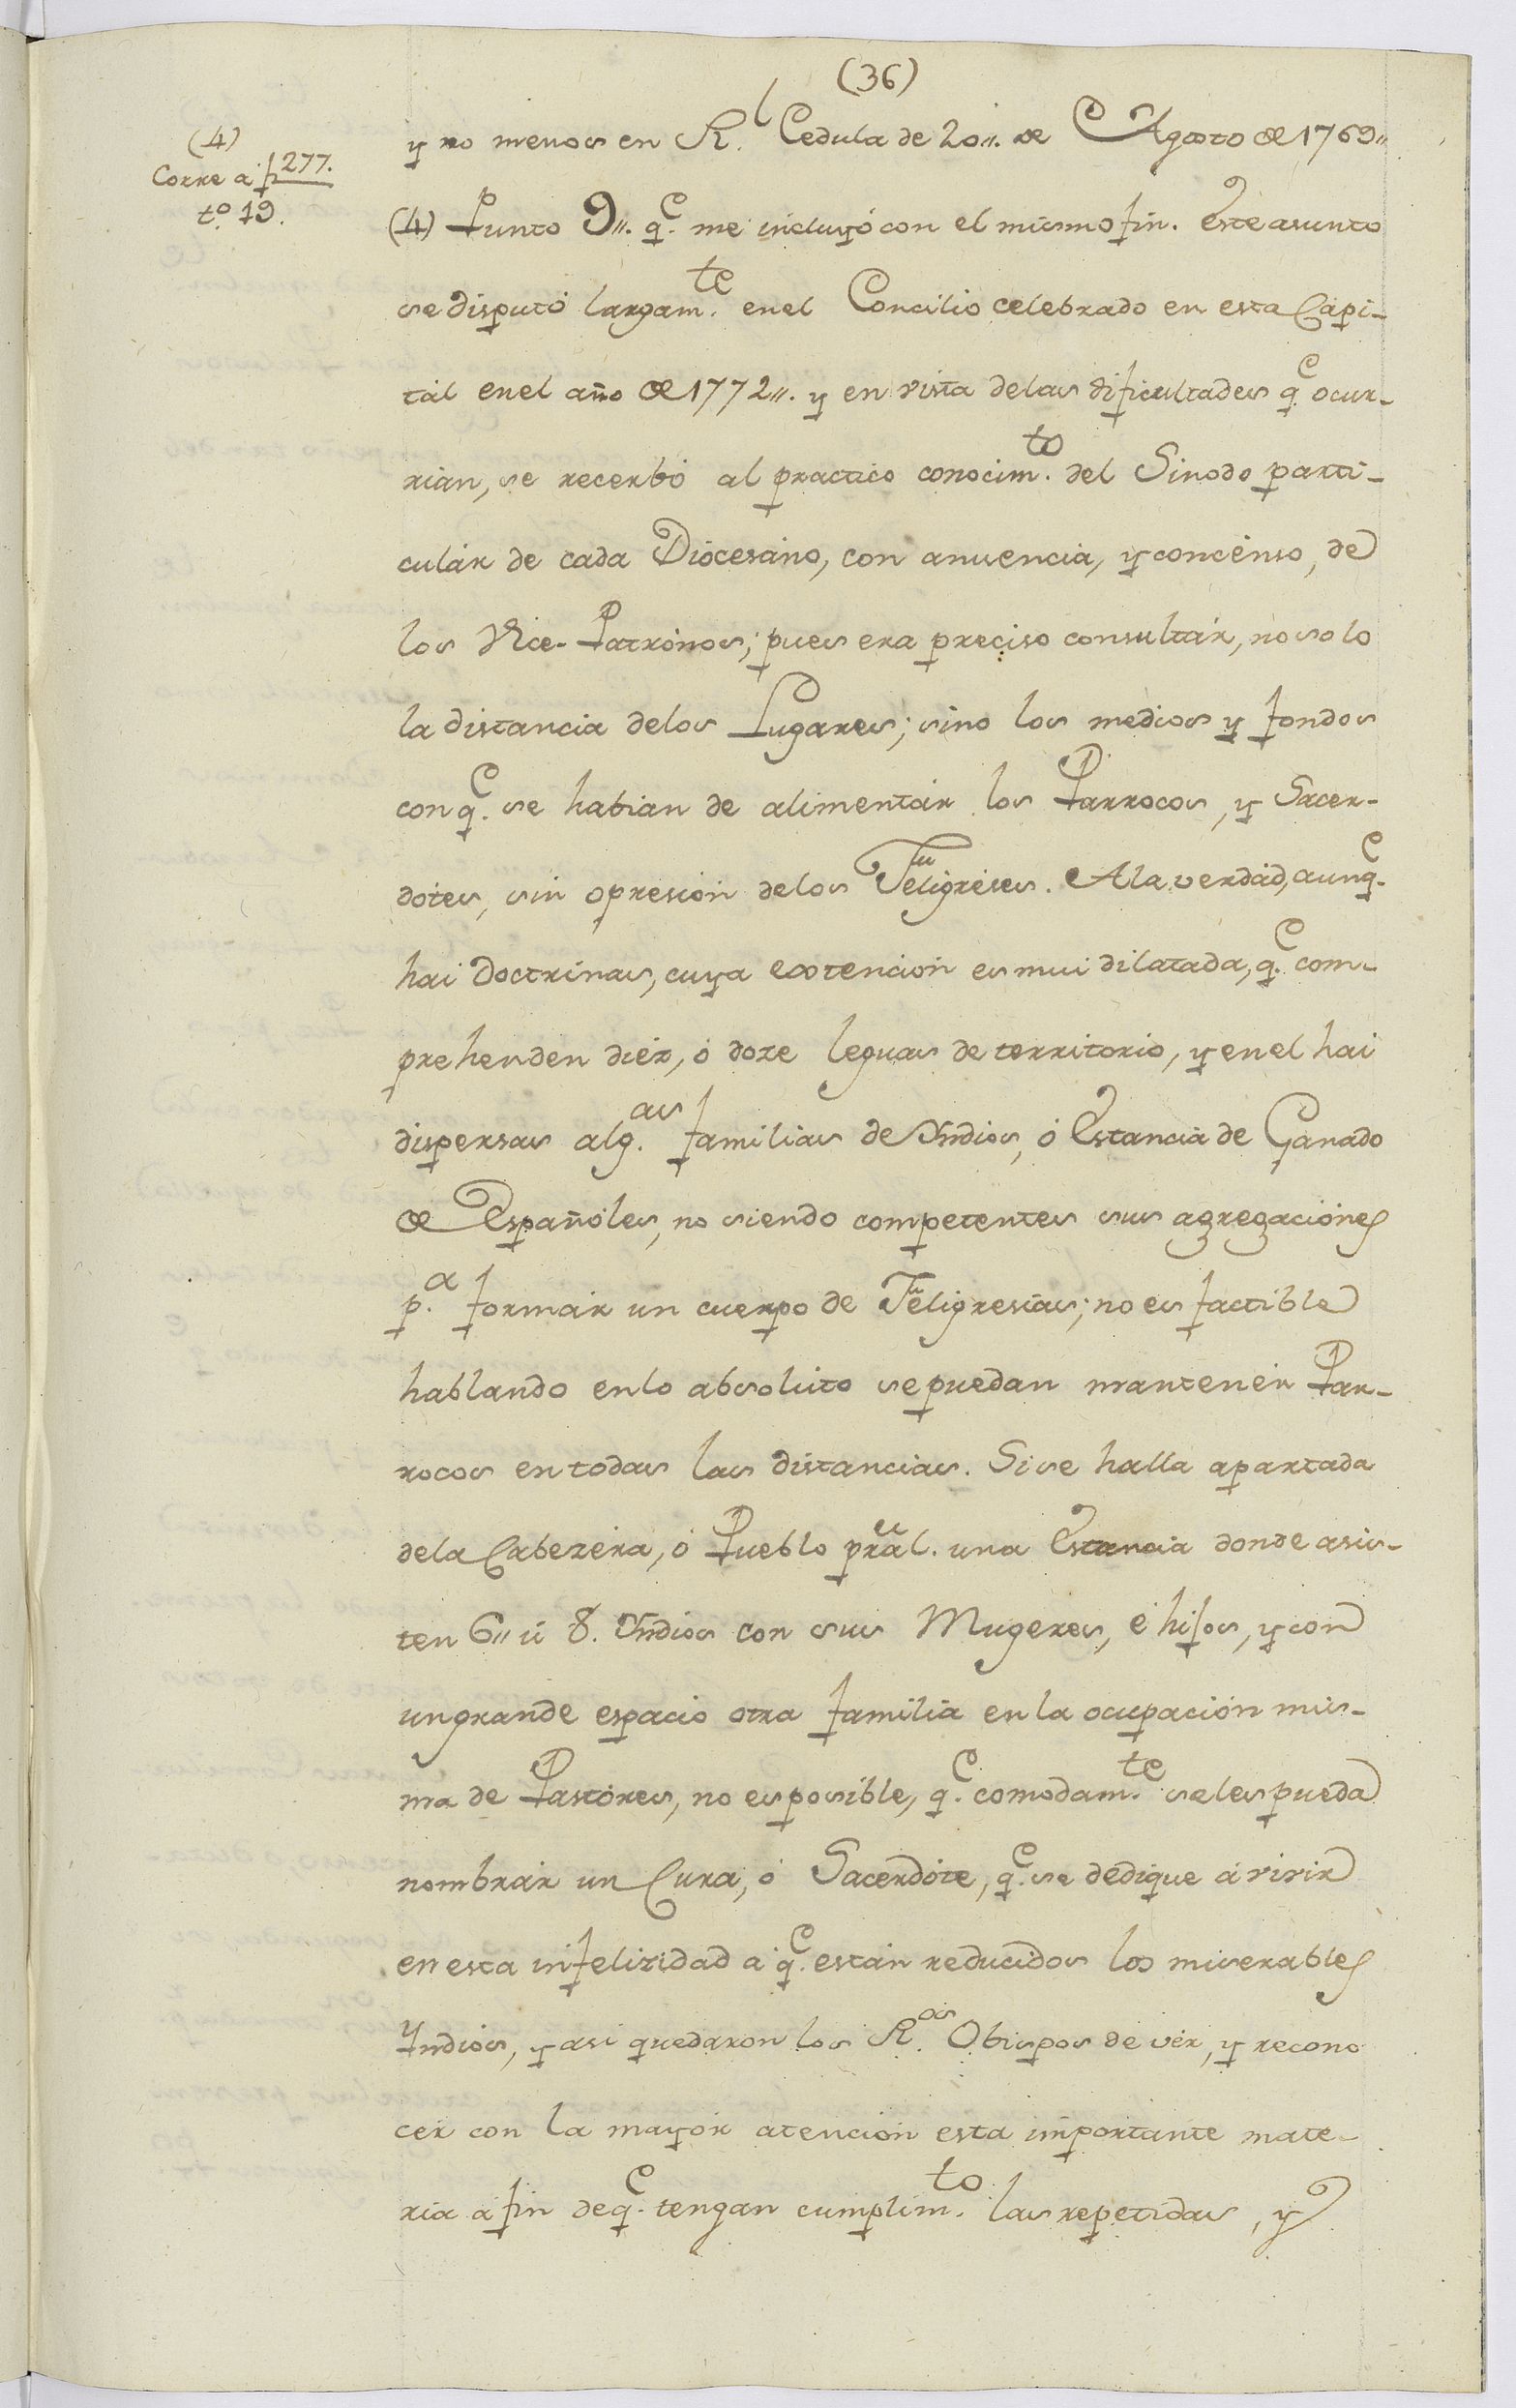 (36)
(4)
Corre a f 277.
to. 19.
y no menos en Rl. Cedula de 20,, de Agosto de 1769,,
(4) Punto 9,, qe. me incluyó con el mismo fin. Este asunto
se disputó largamte. en el Concilio celebrado en esta Capi-
tal en el año de 1772,, y en vista de las dificultades qe. ocur-
rian, se recerbó al practico conocimto. del Sinodo parti-
culár de cada Diócesano, con anuencia, y concenso, de
los Vice-Patrónos; pues era preciso consultár, no solo
la distancia de los Lugares; sino los medios y fondos
con qe. se habian de alimentár los Parrocos, y Sacer-
dótes, sin opresion de los Feligréses. A la verdád, aunqe.
hai Doctrinas, cuya extencion es mui dilatada, qe. com-
prehenden diéz, ó doze leguas de territorio, y en el hai
dispersas algas. familias de Yndios, ó Estancia de Ganado
de Españóles, no siendo competentes sus agregaciónes
pa. formár un cuerpo de Feligresías; no es factible
hablando en lo absolúto se puedan mantenér Par-
rocos en todas las distancias. Si se halla apartada
de la Cabezéra, ó Pueblo pral. una Estancia donde asis-
ten 6,, ú 8. Yndios con sus Mugeres, é hijos, y con
un grande espacio otra familia en la ocupación mis-
ma de Pastóres, no es posible, qe. comodamte. se les pueda
nombrár un Cura, ó Sacerdóte, qe. se dédique á vivir
en esta infelizidad á qe. están reducidos los miserables
Yndios, y asi quedaron los Ros. Obispos de vér, y recono
cer con la mayor atencion esta importante mate-
ria á fin de qe. tengan cumplimto. las repetidas, y